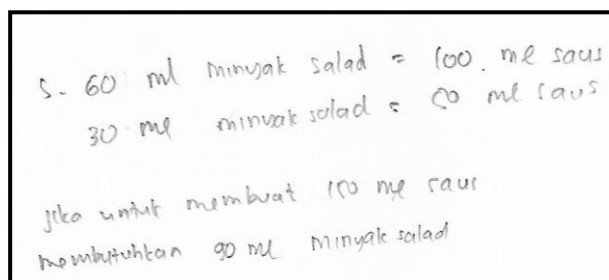 5. 60 ml minyak salad = 100 ml saus
30 ml minyak salad = 50 ml saus
jika untuk membuat 150 ml saus
membutuhkan 90 ml minyak salad